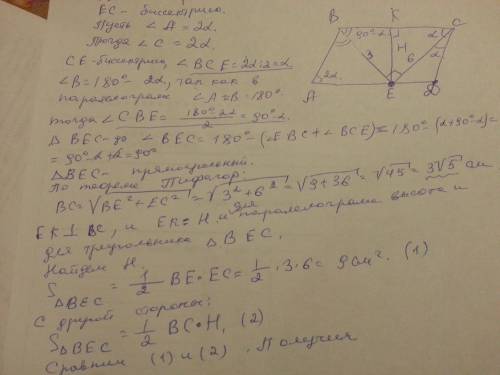 EC - биссектриса.
Пусть ∠A = 2α.
Тогда ∠C = 2α.
CE - биссектриса, ∠BCE = 2α:2 = α
∠B = 180° - 2α, так как в
паралелограм ∠A + B = 180°.
тогда ∠CBE = (180° - 2α)/2 = 90° - α.
Δ BEC - ∠BEC = 180° - (∠EBC + ∠BCE) = 180° - (α + 90° - α) =
= 90° - α + α = 90°
ΔBEC - прямоугольный.
По теореме Пифагора:
BC = √BE² + EC² = √3² + 6² = √9 + 36 = √45 = 3√5 см
EK ⊥ BC, и EK = H. и для паралелограма высота и
для треугольника Δ BEC.
Найдем H.
S ΔBEC = 1/2 BE • EC = 1/2 • 3 • 6 = 9 см². (1)
С другой стороны:
SΔBEC = 1/2 BC • H, (2)
Сравним (1) и (2). Получим
B K C
90°-α α
3 H 6 α
2α.
A E D